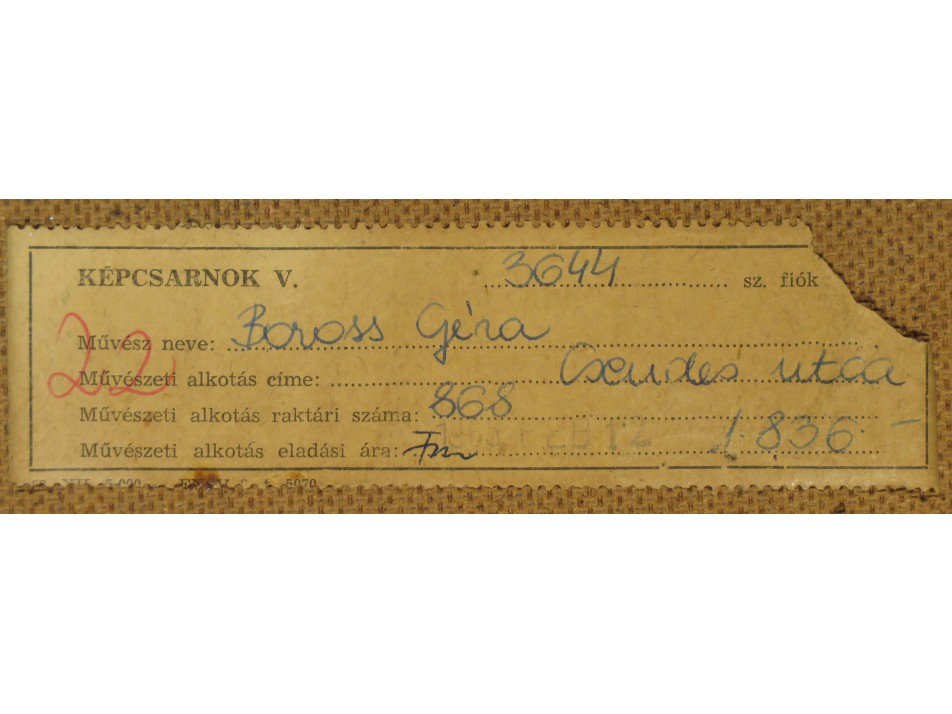 KÉPCSARNOK V. 3644 sz. fiók
22
Művész neve: Boross Géza
Művészeti alkotás címe: Csendes utca
Művészeti alkotás raktári száma: 868
Művészeti alkotás eladási ára: Fm 1.836.-